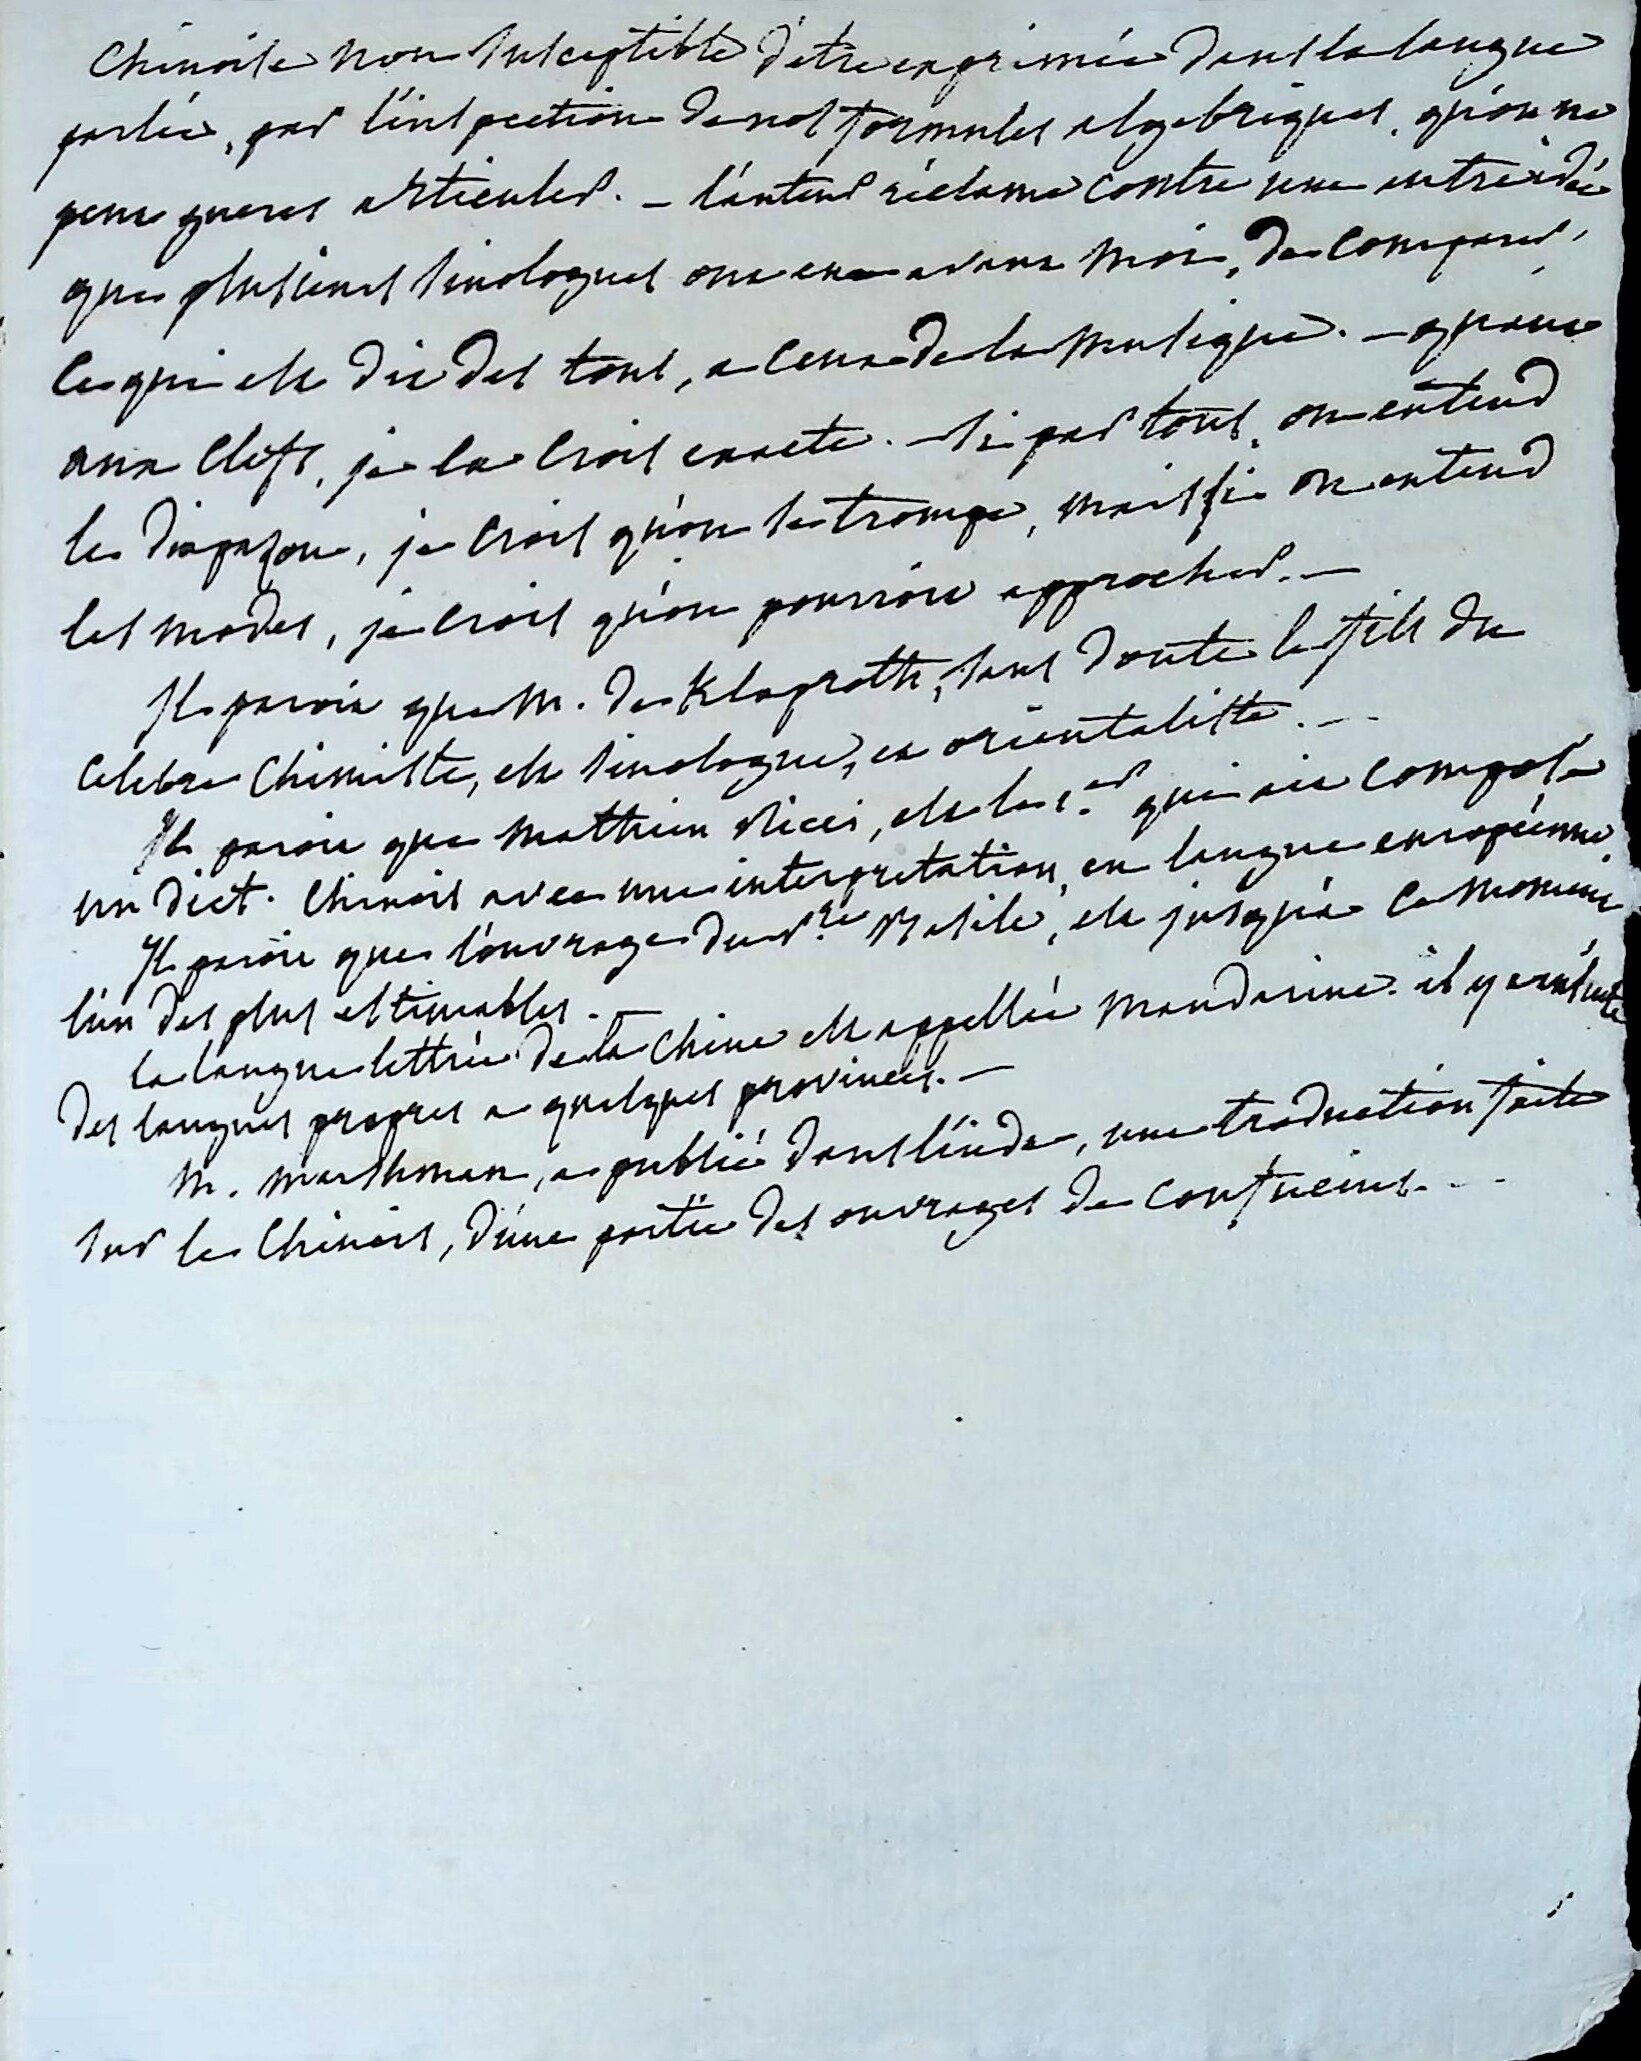 Chinoise non susceptible d'etre exprimée dans la langue
parlée, par l'inspection de nos formules algebriques, qu'on ne
peut gueres articuler. — l'auteur réclame contre une autre idée
que plusieurs sinologues ont eue avant moi, de comparer,
ce qui est dit des tons, a ceux de la musique. — quant
aux clefs, je la crois exacte. — si par tons, on entend
le diapazon, je crois qu'on se trompe, mais si on entend
les modes, je crois qu'on pourroit approcher. —
Il paroit que M. de Klaproth, sans doute le fils du
celebre Chimiste, est sinologue, et orientaliste. —
Il paroit que Mathieu Ricci, est le 1.er qui ait composé
un dict. Chinois avec une interpretation, en langue européenne.
Il paroit que l'ouvrage du P.re Basile, est jusqu'a ce moment
l'un des plus estimables. —
la langue lettrée de la Chine est appellée mandarine. il y a ensuite
des langues propres a quelques provinces. —
M. Marshman, a publié dans l'inde, une traduction faite
sur le Chinois, d'une partie des ouvrages de Confucius. - -